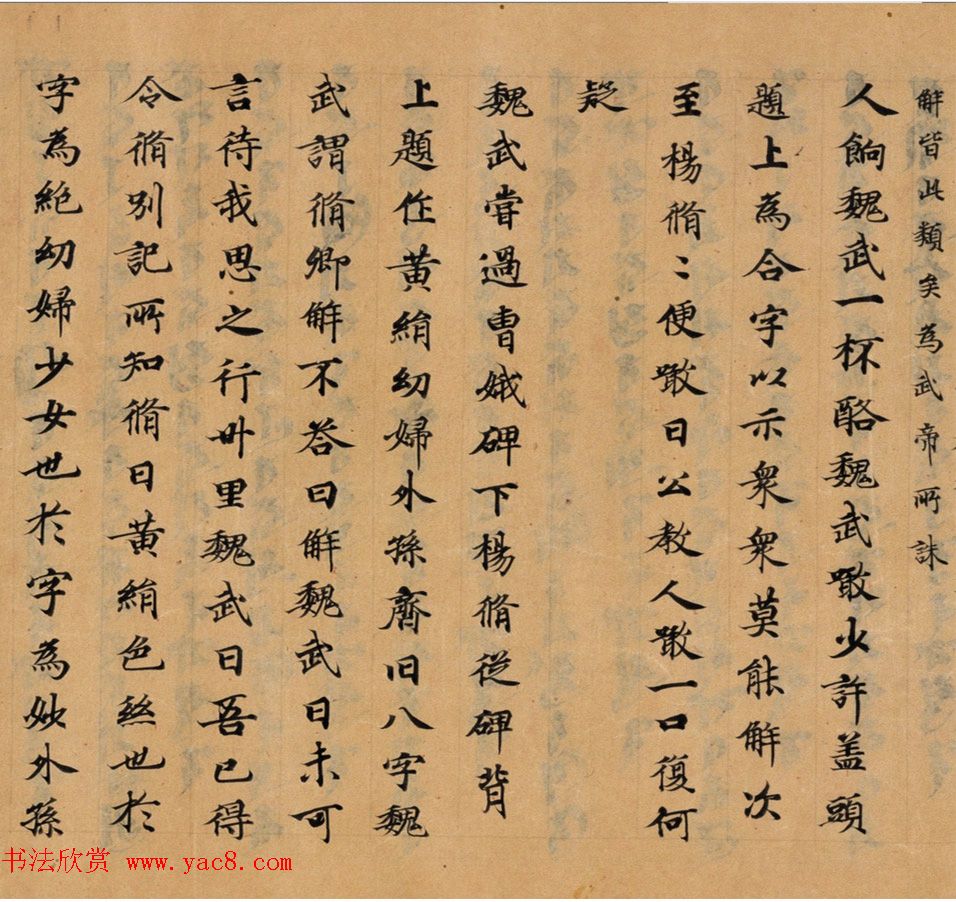 解皆此類矣為武帝所誅
人餉魏武一杯酪魏武噉少許盖頭
題上為合字以示衆衆莫能解次
至楊脩〻便噉曰公教人噉一口復何
疑
魏武甞過曹娥碑下楊脩從碑背
上題作黃絹幼婦外孫齊臼八字魏
武謂脩卿解不答曰解魏武曰未可
言待我思之行卅里魏武曰吾已得
令脩別記所知脩曰黃絹色絲也於
字為絶幼婦少女也於字為妙外孫
书法欣赏 www.yac8.com